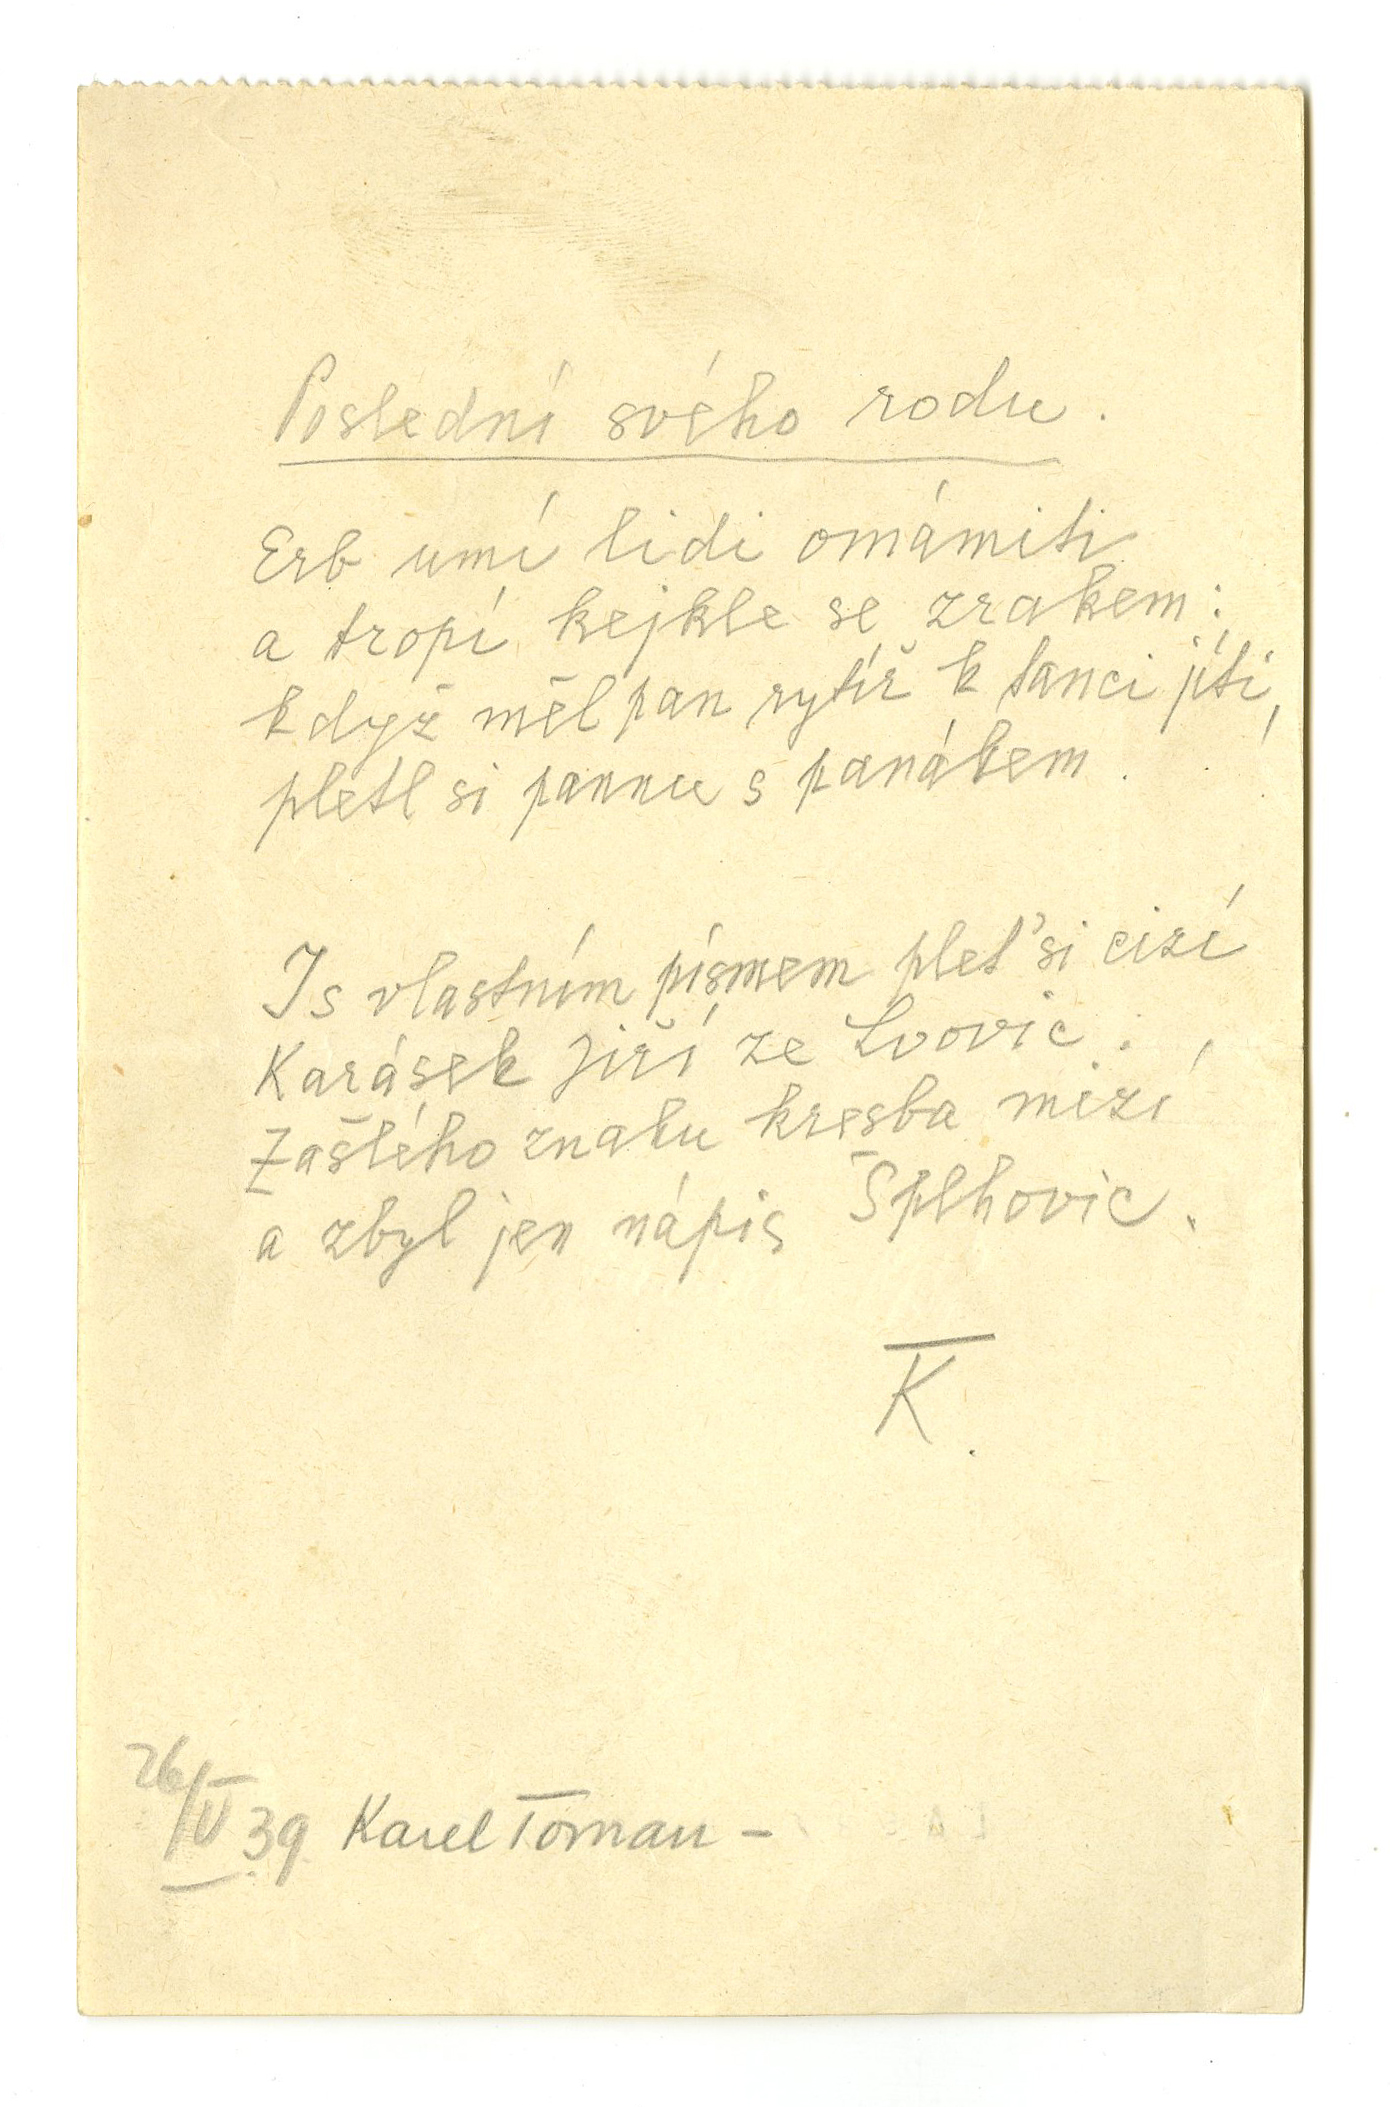 Poslední svého rodu.
Erb umí lidi omámiti
a tropí kejkle se zrakem:
když měl pan rytíř k tanci jíti,
pletl si pannu s panákem.
I s vlastním písmem plet' si cizí
Karásek Jiří ze Lvovic:
Zašlého znaku kresba mizí
a zbyl jen nápis Šplhovic.
K.
26/V 39 Karel Toman -